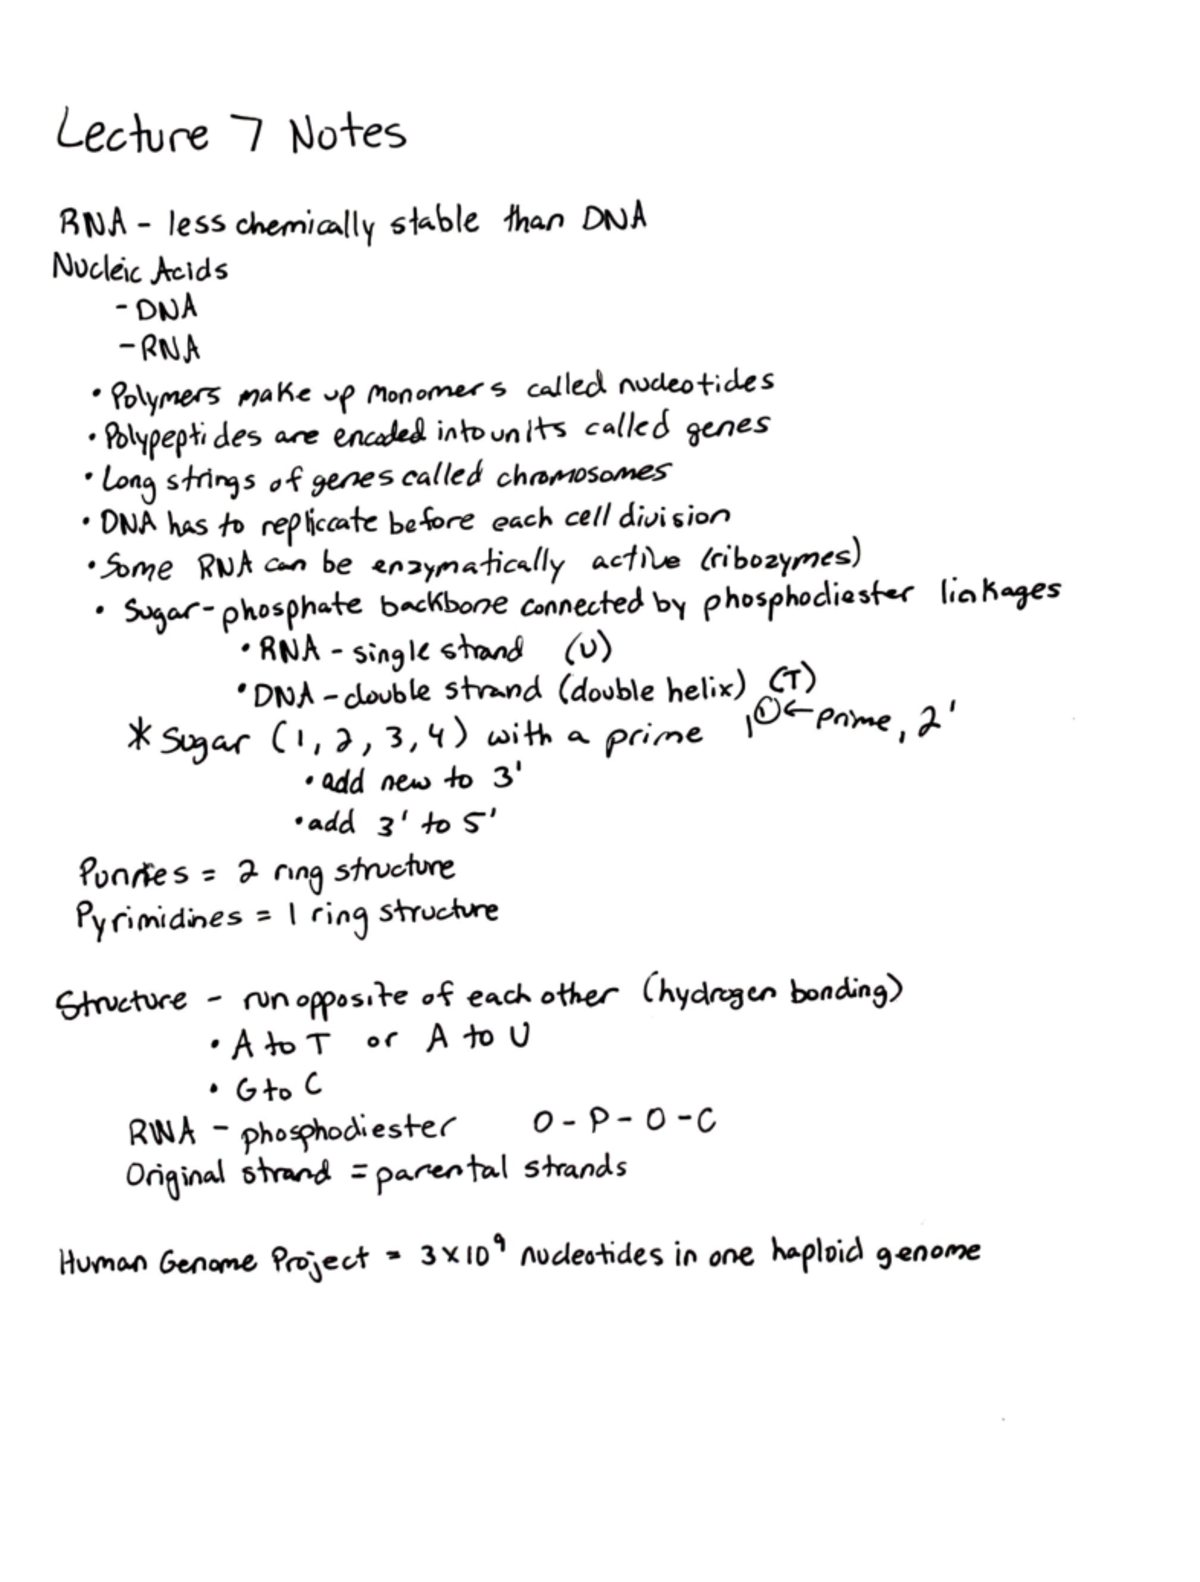 Lecture 7 Notes
RNA - less chemically stable than DNA
Nucleic Acids
- DNA
- RNA
• Polymers make up monomers called nucleotides
• Polypeptides are encoded into units called genes
• Long strings of genes called chromosomes
• DNA has to repliccate before each cell division
• Some RNA can be enzymatically active (ribozymes)
• Sugar-phosphate backbone connected by phosphodiester linkages
• RNA - single strand (U)
• DNA - double strand (double helix) (T)
* Sugar (1, 2, 3, 4) with a prime 1' ← prime, 2'
• add new to 3'
• add 3' to 5'
Purines = 2 ring structure
Pyrimidines = 1 ring structure
Structure - run opposite of each other (hydrogen bonding)
• A to T or A to U
• G to C
RNA - phosphodiester O - P - O - C
Original strand = parental strands
Human Genome Project = 3 x 10⁹ nucleotides in one haploid genome